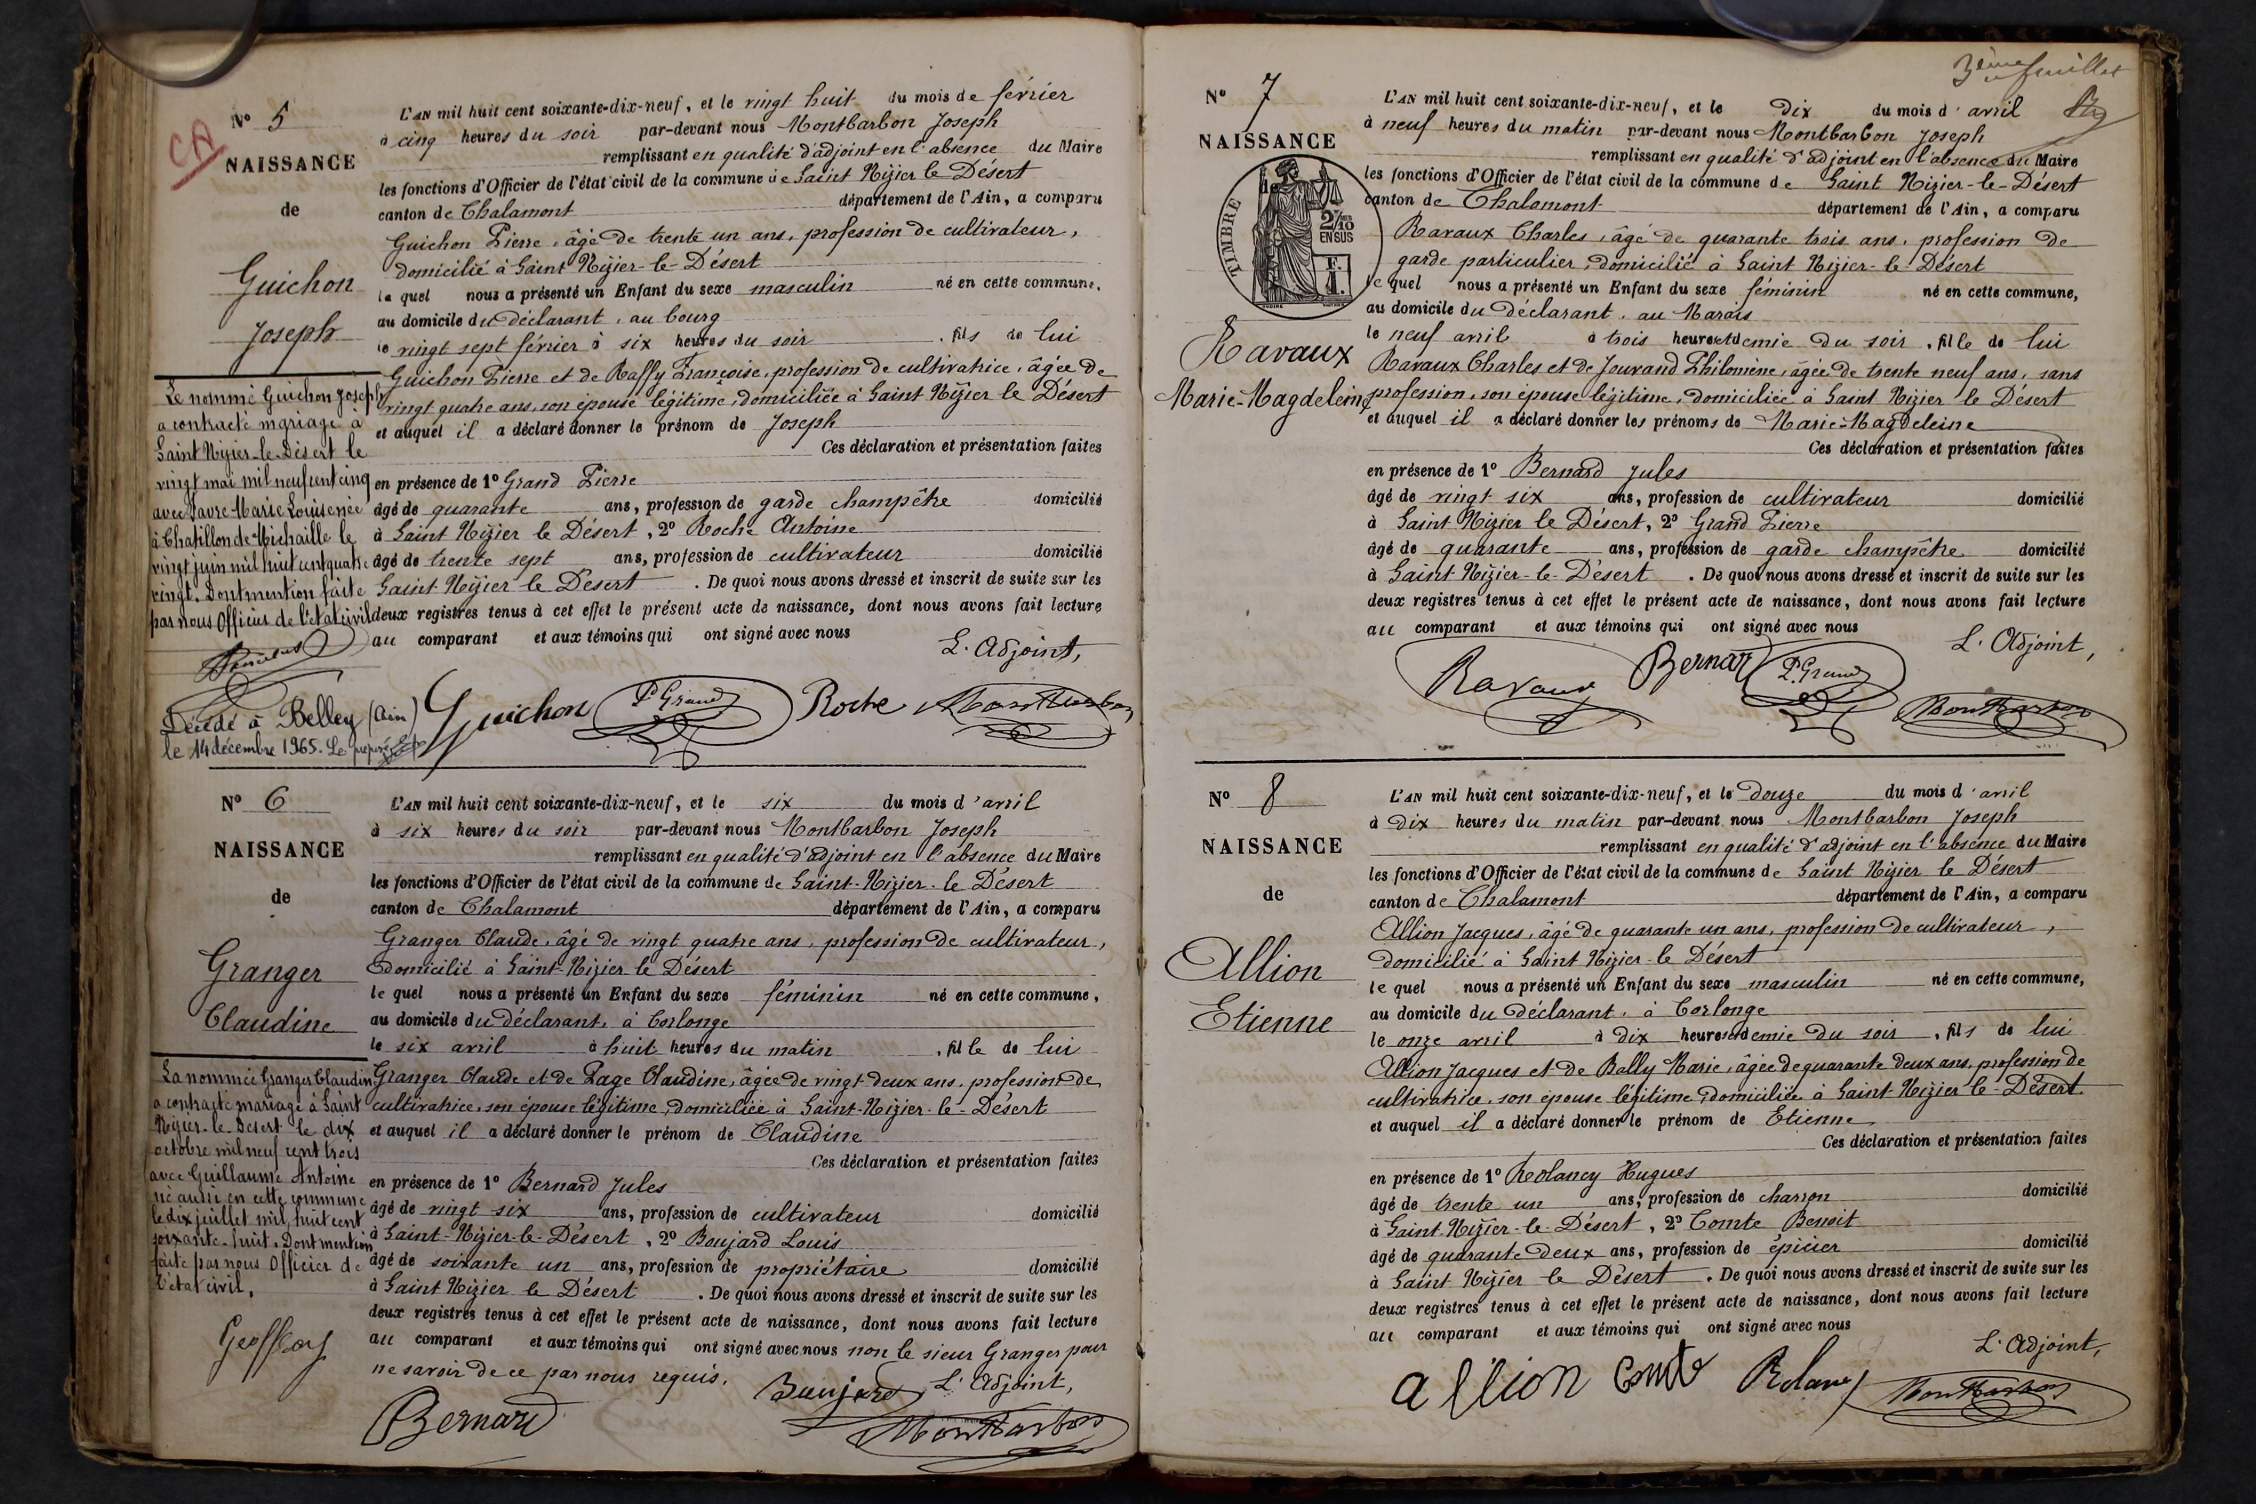 CA
N° 5
NAISSANCE
de
Guichon
Joseph
Le nommé Guichon Joseph
a contracté mariage à
Saint Nizier-le-Désert le
vingt mai mil neuf cent cinq
avec Favre Marie Louise née
à Chatillon de Michaille le
vingt juin mil huit cent quatre
vingt. Dont mention faite
par nous Officier de l'état civil
Décédé à Belley (Ain)
le 14 décembre 1965. Le
L'AN mil huit cent soixante-dix-neuf, et le vingt huit du mois de février
à cinq heures du soir par-devant nous Montbarbon Joseph
remplissant en qualité d'adjoint en l'absence du Maire
les fonctions d'Officier de l'état civil de la commune de Saint Nizier le Désert
canton de Chalamont département de l'Ain, a comparu
Guichon Pierre, âgé de trente un ans, profession de cultivateur,
domicilié à Saint Nizier-le-Désert
le quel nous a présenté un Enfant du sexe masculin né en cette commune,
au domicile du déclarant, au bourg
le vingt sept février à six heures du soir, fils de lui
Guichon Pierre et de Raffy Françoise, profession de cultivatrice, âgée de
vingt quatre ans, son épouse légitime, domiciliée à Saint Nizier le Désert
et auquel il a déclaré donner le prénom de Joseph
Ces déclaration et présentation faites
en présence de 1° Grand Pierre
âgé de quarante ans, profession de garde champêtre domicilié
à Saint Nizier le Désert, 2° Roche Antoine
âgé de trente sept ans, profession de cultivateur domicilié
Saint-Nizier le Désert. De quoi nous avons dressé et inscrit de suite sur les
deux registres tenus à cet effet le présent acte de naissance, dont nous avons fait lecture
au comparant et aux témoins qui ont signé avec nous
L'Adjoint,
Guichon P. Grand Roche Montbarbon
N° 6
NAISSANCE
de
Granger
Claudine
La nommée Granger Claudine
a contracté mariage à Saint
Nizier-le-Désert le dix
octobre mil neuf cent trois
avec Guillaume Antoine
né aussi en cette commune
le dix juillet mil huit cent
soixante-huit. Dont mention
faite par nous Officier de
l'état civil,
Geoffray
L'AN mil huit cent soixante-dix-neuf, et le six du mois d'avril
à six heures du soir par-devant nous Montbarbon Joseph
remplissant en qualité d'adjoint en l'absence du Maire
les fonctions d'Officier de l'état civil de la commune de Saint-Nizier-le Désert
canton de Chalamont département de l'Ain, a comparu
Granger Claude, âgé de vingt quatre ans, profession de cultivateur,
domicilié à Saint-Nizier le Désert
le quel nous a présenté un Enfant du sexe féminin né en cette commune,
au domicile du déclarant, à Corlonge
le six avril à huit heures du matin, fille de lui
Granger Claude et de Page Claudine, âgée de vingt deux ans, profession de
cultivatrice, son épouse légitime, domiciliée à Saint-Nizier-le-Désert
et auquel il a déclaré donner le prénom de Claudine
Ces déclaration et présentation faites
en présence de 1° Bernard Jules
âgé de vingt six ans, profession de cultivateur domicilié
à Saint-Nizier-le-Désert, 2° Boujard Louis
âgé de soixante un ans, profession de propriétaire domicilié
à Saint Nizier le Désert. De quoi nous avons dressé et inscrit de suite sur les
deux registres tenus à cet effet le présent acte de naissance, dont nous avons fait lecture
au comparant et aux témoins qui ont signé avec nous non le sieur Granger pour
ne savoir de ce par nous requis.
L'Adjoint,
Bernard Boujard Montbarbon
3ème feuillet
N° 7
NAISSANCE
TIMBRE
2/10 EN SUS
Ravaux
Marie-Magdeleine
L'AN mil huit cent soixante-dix-neuf, et le dix du mois d'avril
à neuf heures du matin par-devant nous Montbarbon Joseph
remplissant en qualité d'adjoint en l'absence du Maire
les fonctions d'Officier de l'état civil de la commune de Saint Nizier-le-Désert
canton de Chalamont département de l'Ain, a comparu
Ravaux Charles, âgé de quarante trois ans, profession de
garde particulier, domicilié à Saint Nizier-le-Désert
le quel nous a présenté un Enfant du sexe féminin né en cette commune,
au domicile du déclarant, au Marais
le neuf avril à trois heures et demie du soir, fille de lui
Ravaux Charles et de Jouvand Philomène, âgée de trente neuf ans, sans
profession, son épouse légitime, domiciliée à Saint Nizier le Désert
et auquel il a déclaré donner les prénoms de Marie-Magdeleine
Ces déclaration et présentation faites
en présence de 1° Bernard Jules
âgé de vingt six ans, profession de cultivateur domicilié
à Saint Nizier le Désert, 2° Grand Pierre
âgé de quarante ans, profession de garde champêtre domicilié
à Saint-Nizier-le-Désert. De quoi nous avons dressé et inscrit de suite sur les
deux registres tenus à cet effet le présent acte de naissance, dont nous avons fait lecture
au comparant et aux témoins qui ont signé avec nous
L'Adjoint,
Ravaux Bernard P. Grand Montbarbon
N° 8
NAISSANCE
de
Allion
Etienne
L'AN mil huit cent soixante-dix-neuf, et le douze du mois d'avril
à dix heures du matin par-devant nous Montbarbon Joseph
remplissant en qualité d'adjoint en l'absence du Maire
les fonctions d'Officier de l'état civil de la commune de Saint Nizier le Désert
canton de Chalamont département de l'Ain, a comparu
Allion Jacques, âgé de quarante un ans, profession de cultivateur,
domicilié à Saint Nizier-le Désert
le quel nous a présenté un Enfant du sexe masculin né en cette commune,
au domicile du déclarant, à Corlonge
le onze avril à dix heures et demie du soir, fils de lui
Allion Jacques et de Bally Marie, âgée de quarante deux ans, profession de
cultivatrice, son épouse légitime, domiciliée à Saint Nizier le-Désert
et auquel il a déclaré donner le prénom de Etienne
Ces déclaration et présentation faites
en présence de 1° Rolancy Hugues
âgé de trente un ans, profession de charron domicilié
à Saint-Nizier-le-Désert, 2° Comte Benoit
âgé de quarante deux ans, profession de épicier domicilié
à Saint Nizier le Désert. De quoi nous avons dressé et inscrit de suite sur les
deux registres tenus à cet effet le présent acte de naissance, dont nous avons fait lecture
au comparant et aux témoins qui ont signé avec nous
L'Adjoint,
allion Comte Montbarbon